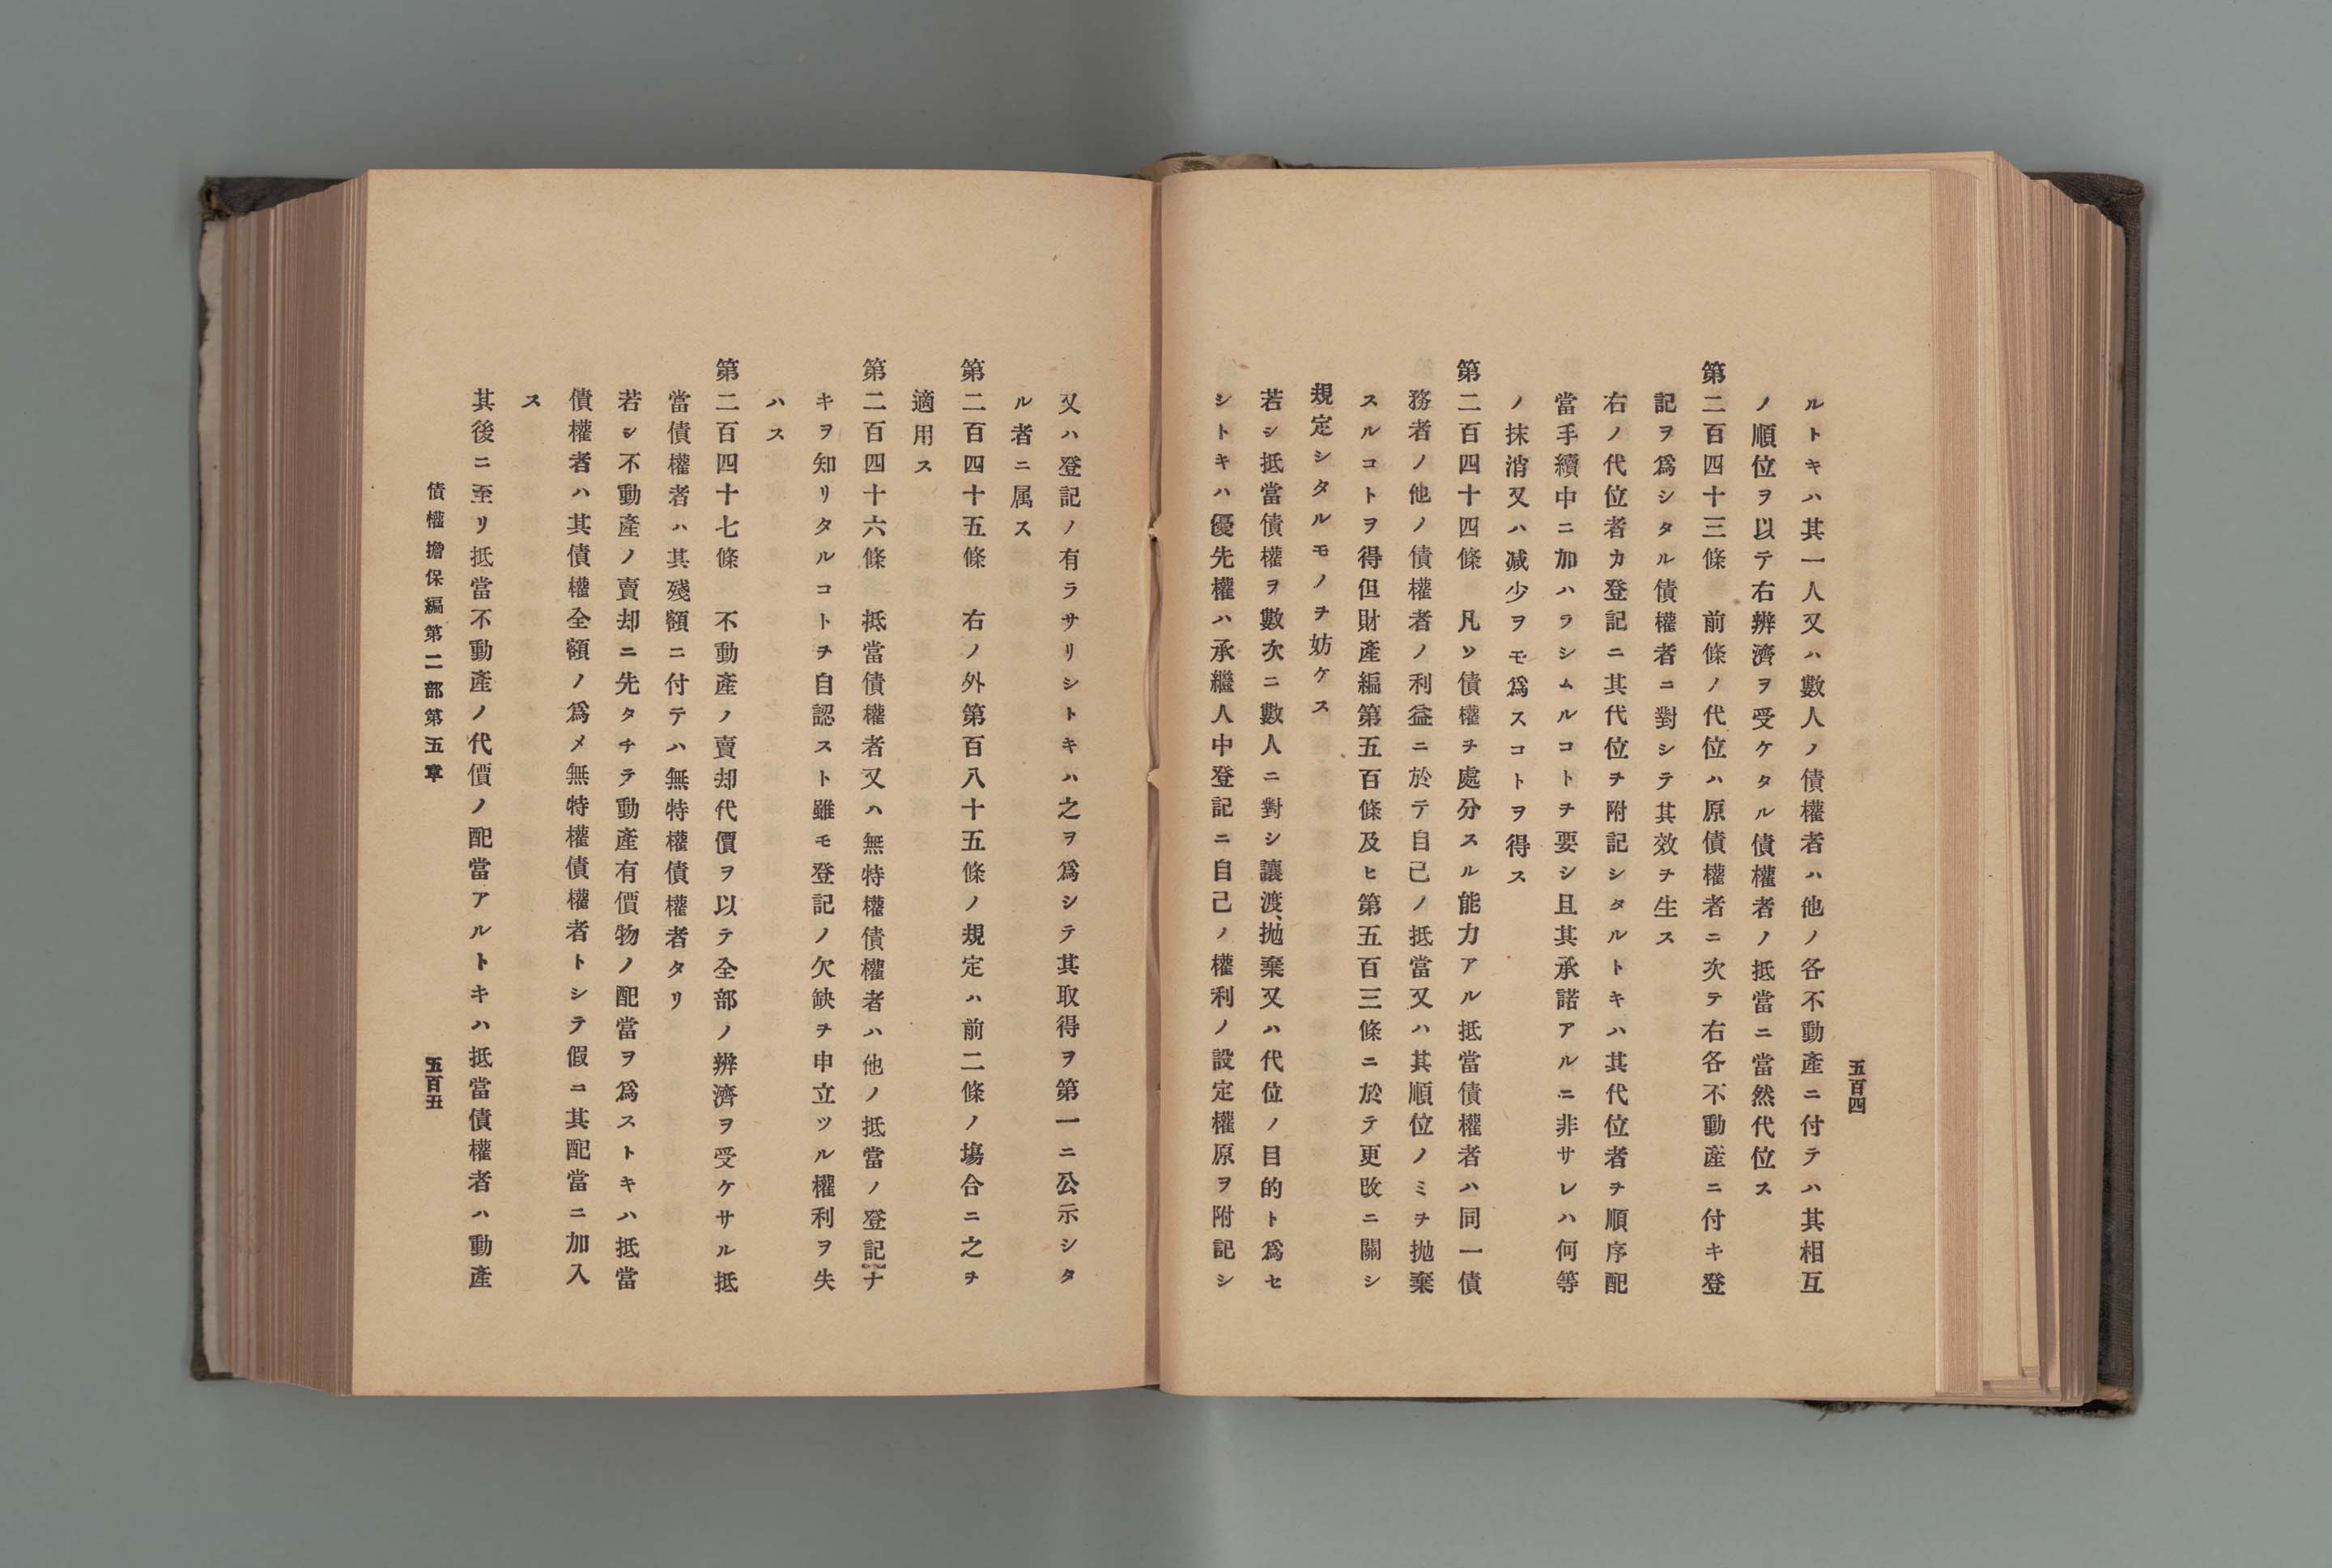 五百四
ルトキハ其一人又ハ數人ノ債權者ハ他ノ各不動產ニ付テハ其相互
ノ順位ヲ以テ右辨濟ヲ受ケタル債權者ノ抵當ニ當然代位ス
第二百四十三條 前條ノ代位ハ原債權者ニ次テ右各不動產ニ付キ登
記ヲ爲シタル債權者ニ對シテ其效ヲ生ス
右ノ代位者カ登記ニ其代位ヲ附記シタルトキハ其代位者ヲ順序配
當手續中ニ加ハラシムルコトヲ要シ且其承諾アルニ非サレハ何等
ノ抹消又ハ减少ヲモ爲スコトヲ得ス
第二百四十四條 凡ソ債權ヲ處分スル能力アル抵當債權者ハ同一債
務者ノ他ノ債權者ノ利益ニ於テ自己ノ抵當又ハ其順位ノミヲ抛棄
スルコトヲ得但財產編第五百條及ヒ第五百三條ニ於テ更改ニ關シ
規定シタルモノヲ妨ケス
若シ抵當債權ヲ數次ニ數人ニ對シ讓渡、抛棄又ハ代位ノ目的ト爲セ
シトキハ優先權ハ承繼人中登記ニ自己ノ權利ノ設定權原ヲ附記シ
又ハ登記ノ有ラサリシトキハ之ヲ爲シテ其取得ヲ第一ニ公示シタ
ル者ニ属ス
第二百四十五條 右ノ外第百八十五條ノ規定ハ前二條ノ塲合ニ之ヲ
適用ス
第二百四十六條 抵當債權者又ハ無特權債權者ハ他ノ抵當ノ登記ナ
キヲ知リタルコトヲ自認スト雖モ登記ノ欠缺ヲ申立ツル權利ヲ失
ハス
第二百四十七條 不動產ノ賣却代價ヲ以テ全部ノ辨濟ヲ受ケサル抵
當債權者ハ其殘額ニ付テハ無特權債權者タリ
若シ不動產ノ賣却ニ先タチテ動產有價物ノ配當ヲ爲ストキハ抵當
債權者ハ其債權全額ノ爲メ無特權債權者トシテ假ニ其配當ニ加入
ス
其後ニ至リ抵當不動產ノ代價ノ配當アルトキハ抵當債權者ハ動產
債權擔保編第二部第五章
五百五